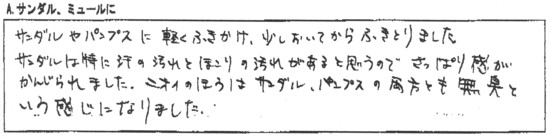 A. サンダル、ミュールに
サンダルやパンプスに軽くふきかけ、少しおいてからふきとりました
サンダルは特に汗の汚れとほこりの汚れがあると思うので さっぱり感が
かんじられました。ニオイのほうはサンダル、パンプスの両方とも無臭と
いう感じになりました。